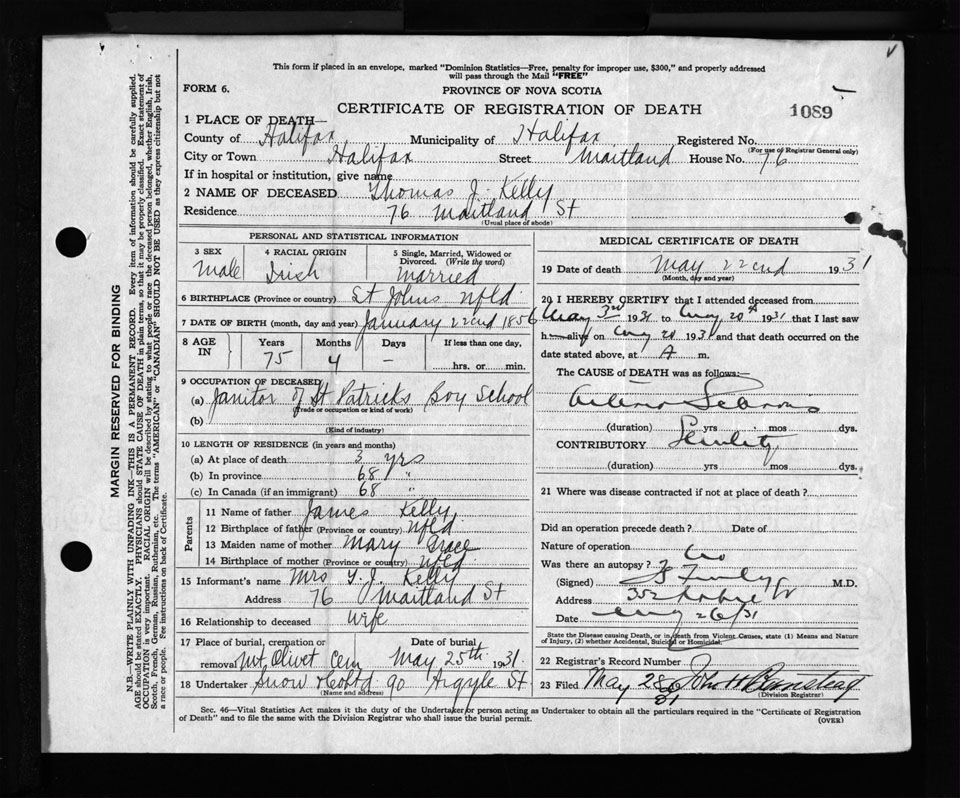 This form if placed in an envelope, marked "Dominion Statistics—Free, penalty for improper use, $300," and properly addressed
will pass through the Mail "FREE"
FORM 6.
PROVINCE OF NOVA SCOTIA
CERTIFICATE OF REGISTRATION OF DEATH
1089
1 PLACE OF DEATH—
County of Halifax Municipality of Halifax Registered No.
(For use of Registrar General only)
City or Town Halifax Street Maitland House No. 76
If in hospital or institution, give name
2 NAME OF DECEASED Thomas J. Kelly
Residence 76 Maitland St
(Usual place of abode)
PERSONAL AND STATISTICAL INFORMATION
3 SEX 4 RACIAL ORIGIN 5 Single, Married, Widowed or
Divorced. (Write the word)
Male Irish Married
6 BIRTHPLACE (Province or country) St Johns Nfld
7 DATE OF BIRTH (month, day and year) January 22nd 1856
8 AGE IN Years Months Days If less than one day,
75 4 — hrs. or min.
9 OCCUPATION OF DECEASED
(a) Janitor of St Patricks Boy School
(Trade or occupation or kind of work)
(b)
(Kind of industry)
10 LENGTH OF RESIDENCE (in years and months)
(a) At place of death 3 yrs
(b) In province 68 "
(c) In Canada (if an immigrant) 68 "
Parents
11 Name of father James Kelly
12 Birthplace of father (Province or country) Nfld
13 Maiden name of mother Mary Grace
14 Birthplace of mother (Province or country) Nfld
15 Informant's name Mrs T. J. Kelly
Address 76 Maitland St
16 Relationship to deceased wife
17 Place of burial, cremation or Date of burial
removal Mt Olivet Cem May 25th 1931
18 Undertaker Snow & Co Ltd 90 Argyle St
(Name and address)
MEDICAL CERTIFICATE OF DEATH
19 Date of death May 22nd 1931
(Month, day and year)
20 I HEREBY CERTIFY that I attended deceased from
May 3rd 1931 to May 20th 1931 that I last saw
h alive on May 20 1931 and that death occurred on the
date stated above, at A m.
The CAUSE of DEATH was as follows:—
Arterio Sclerosis
(duration) yrs mos dys.
CONTRIBUTORY Senility
(duration) yrs mos dys.
21 Where was disease contracted if not at place of death?
Did an operation precede death? Date of
Nature of operation
Was there an autopsy? no
(Signed) M.D.
Address
Date May 26/31
State the Disease causing Death, or in death from Violent Causes, state (1) Means and Nature
of Injury, (2) whether Accidental, Suicidal or Homicidal.
22 Registrar's Record Number
23 Filed May 28 31 John H
(Division Registrar)
Sec. 46—Vital Statistics Act makes it the duty of the Undertaker or person acting as Undertaker to obtain all the particulars required in the "Certificate of Registration
of Death" and to file the same with the Division Registrar who shall issue the burial permit.
(OVER)
MARGIN RESERVED FOR BINDING
N.B.—WRITE PLAINLY WITH UNFADING INK—THIS IS A PERMANENT RECORD. Every item of information should be carefully supplied.
AGE should be stated EXACTLY. PHYSICIANS should STATE CAUSE OF DEATH in plain terms, so that it may be properly classified. Exact statement of
OCCUPATION is very important. RACIAL ORIGIN will be described by stating to what people or race the deceased person belonged, whether English, Irish,
Scotch, French, German, Russian, Ruthenian, etc. The terms "AMERICAN" or "CANADIAN" SHOULD NOT BE USED as they express citizenship but not
a race or people. See instructions on back of Certificate.